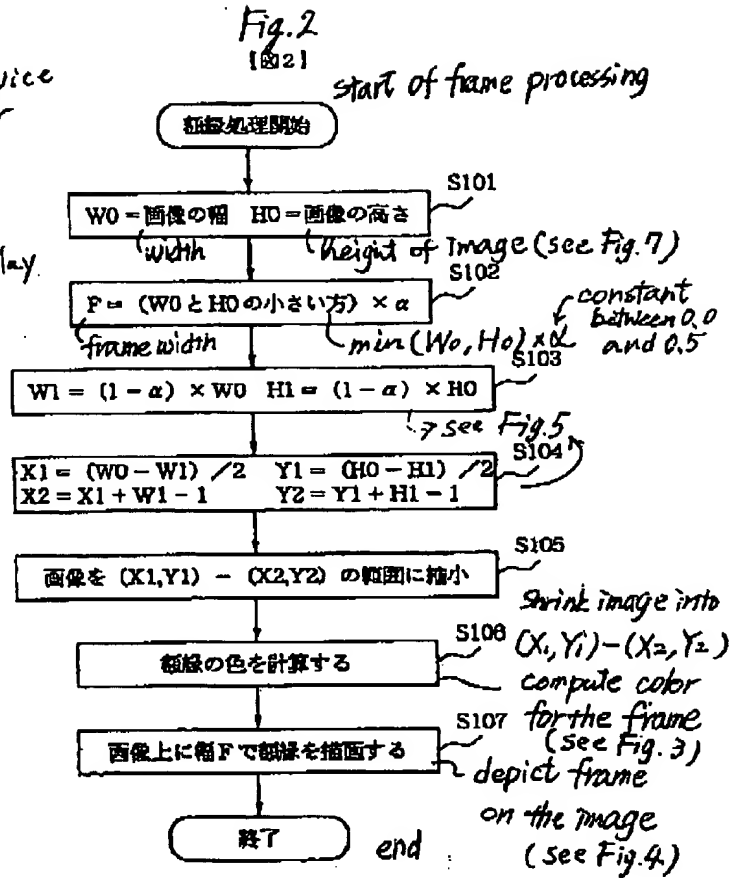 Fig.2
【図2】
vice
start of frame processing
額縁処理開始
S101
W0=画像の幅 H0=画像の高さ
width
height of image (see Fig.7)
lay
S102
F=(W0とH0の小さい方)×α
constant
between 0.0
and 0.5
frame width
min(W0, H0)×α
S103
W1=(1-α)×W0 H1=(1-α)×H0
see Fig.5
S104
X1=(W0-W1)/2 Y1=(H0-H1)/2
X2=X1+W1-1 Y2=Y1+H1-1
S105
画像を(X1,Y1)-(X2,Y2)の範囲に縮小
shrink image into
(X1,Y1)-(X2,Y2)
S106
額縁の色を計算する
compute color
for the frame
(see Fig.3)
S107
画像上に幅Fで額縁を描画する
depict frame
on the image
(see Fig.4)
終了
end